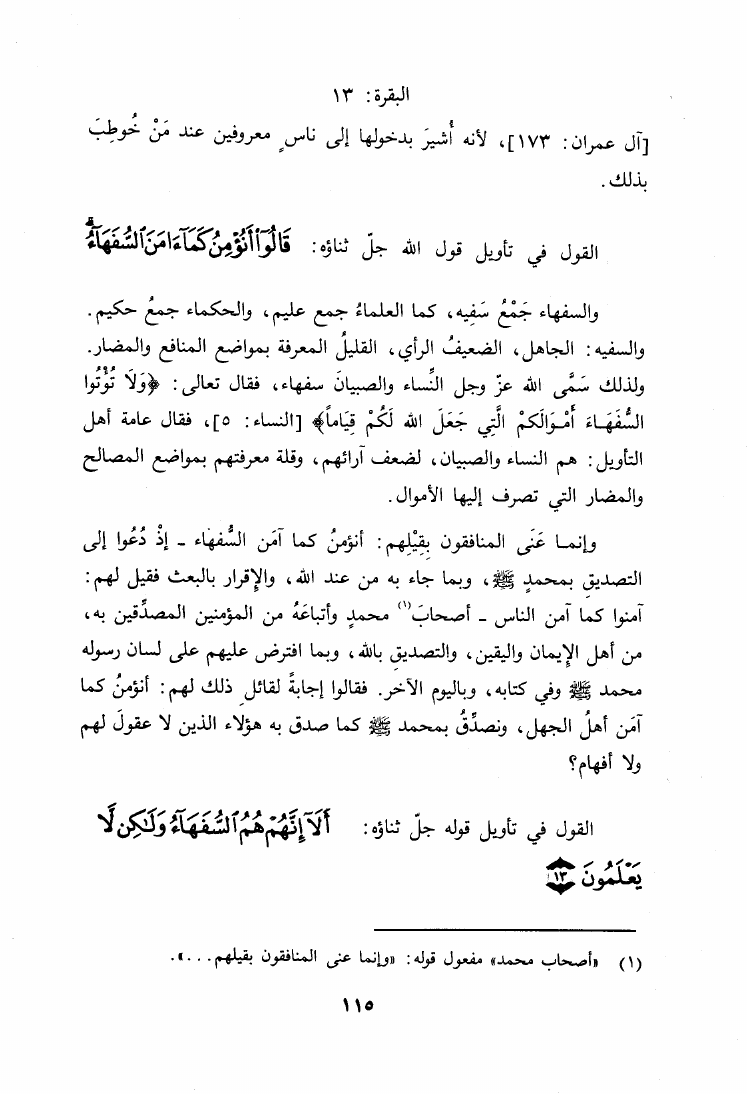 البقرة: ١٣
[آل عمران: ١٧٣]، لأنه أُشيرَ بدخولها إلى ناسٍ معروفين عند مَنْ خُوطِبَ
بذلك.
القول في تأويل قول الله جلّ ثناؤه: قَالُوٓا۟ أَنُؤْمِنُ كَمَآ ءَامَنَ ٱلسُّفَهَآءُ ۗ
والسفهاء جَمْعُ سَفِيه، كما العلماءُ جمع عليم، والحكماء جمعُ حكيم.
والسفيه: الجاهل، الضعيفُ الرأي، القليلُ المعرفة بمواضع المنافع والمضار.
ولذلك سَمَّى الله عزّ وجل النِّساء والصبيانَ سفهاء، فقال تعالى: ﴿وَلَا تُؤْتُوا
السُّفَهَاءَ أَمْوَالَكُمْ الَّتِي جَعَلَ الله لَكُمْ قِيَاماً﴾ [النساء: ٥]، فقال عامة أهل
التأويل: هم النساء والصبيان، لضعف آرائهم، وقلة معرفتهم بمواضع المصالح
والمضار التي تصرف إليها الأموال.
وإنما عَنَى المنافقون بِقِيْلِهم: أنؤمنُ كما آمَن السُّفهاء ـ إذْ دُعُوا إلى
التصديقِ بمحمدٍ ﷺ، وبما جاء به من عند الله، والإقرار بالبعث فقيل لهم:
آمنوا كما آمن الناس ـ أصحابَ(١) محمدٍ وأتباعَهُ من المؤمنين المصدِّقين به،
من أهل الإيمان واليقين، والتصديقِ بالله، وبما افترض عليهم على لسان رسوله
محمد ﷺ وفي كتابه، وباليوم الآخر. فقالوا إجابةً لقائل ذلك لهم: أنؤمنُ كما
آمَن أهلُ الجهل، ونصدِّقُ بمحمد ﷺ كما صدق به هؤلاء الذين لا عقولَ لهم
ولا أفهام؟
القول في تأويل قوله جلّ ثناؤه: أَلَآ إِنَّهُمْ هُمُ ٱلسُّفَهَآءُ وَلَٰكِن لَّا
يَعْلَمُونَ ١٣
(١) «أصحاب محمد» مفعول قوله: «وإنما عنى المنافقون بقيلهم...».
١١٥